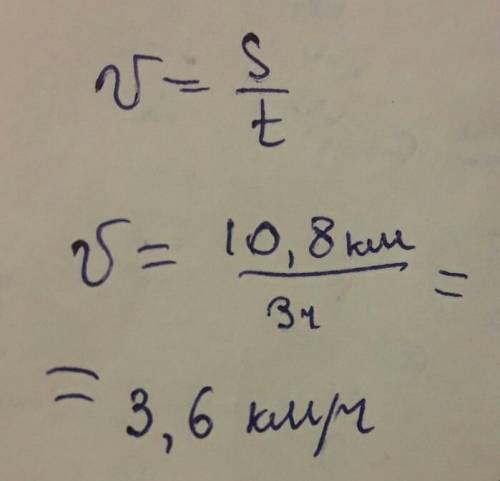 v = s/t
v = 10,8 км/3ч =
= 3,6 км/ч